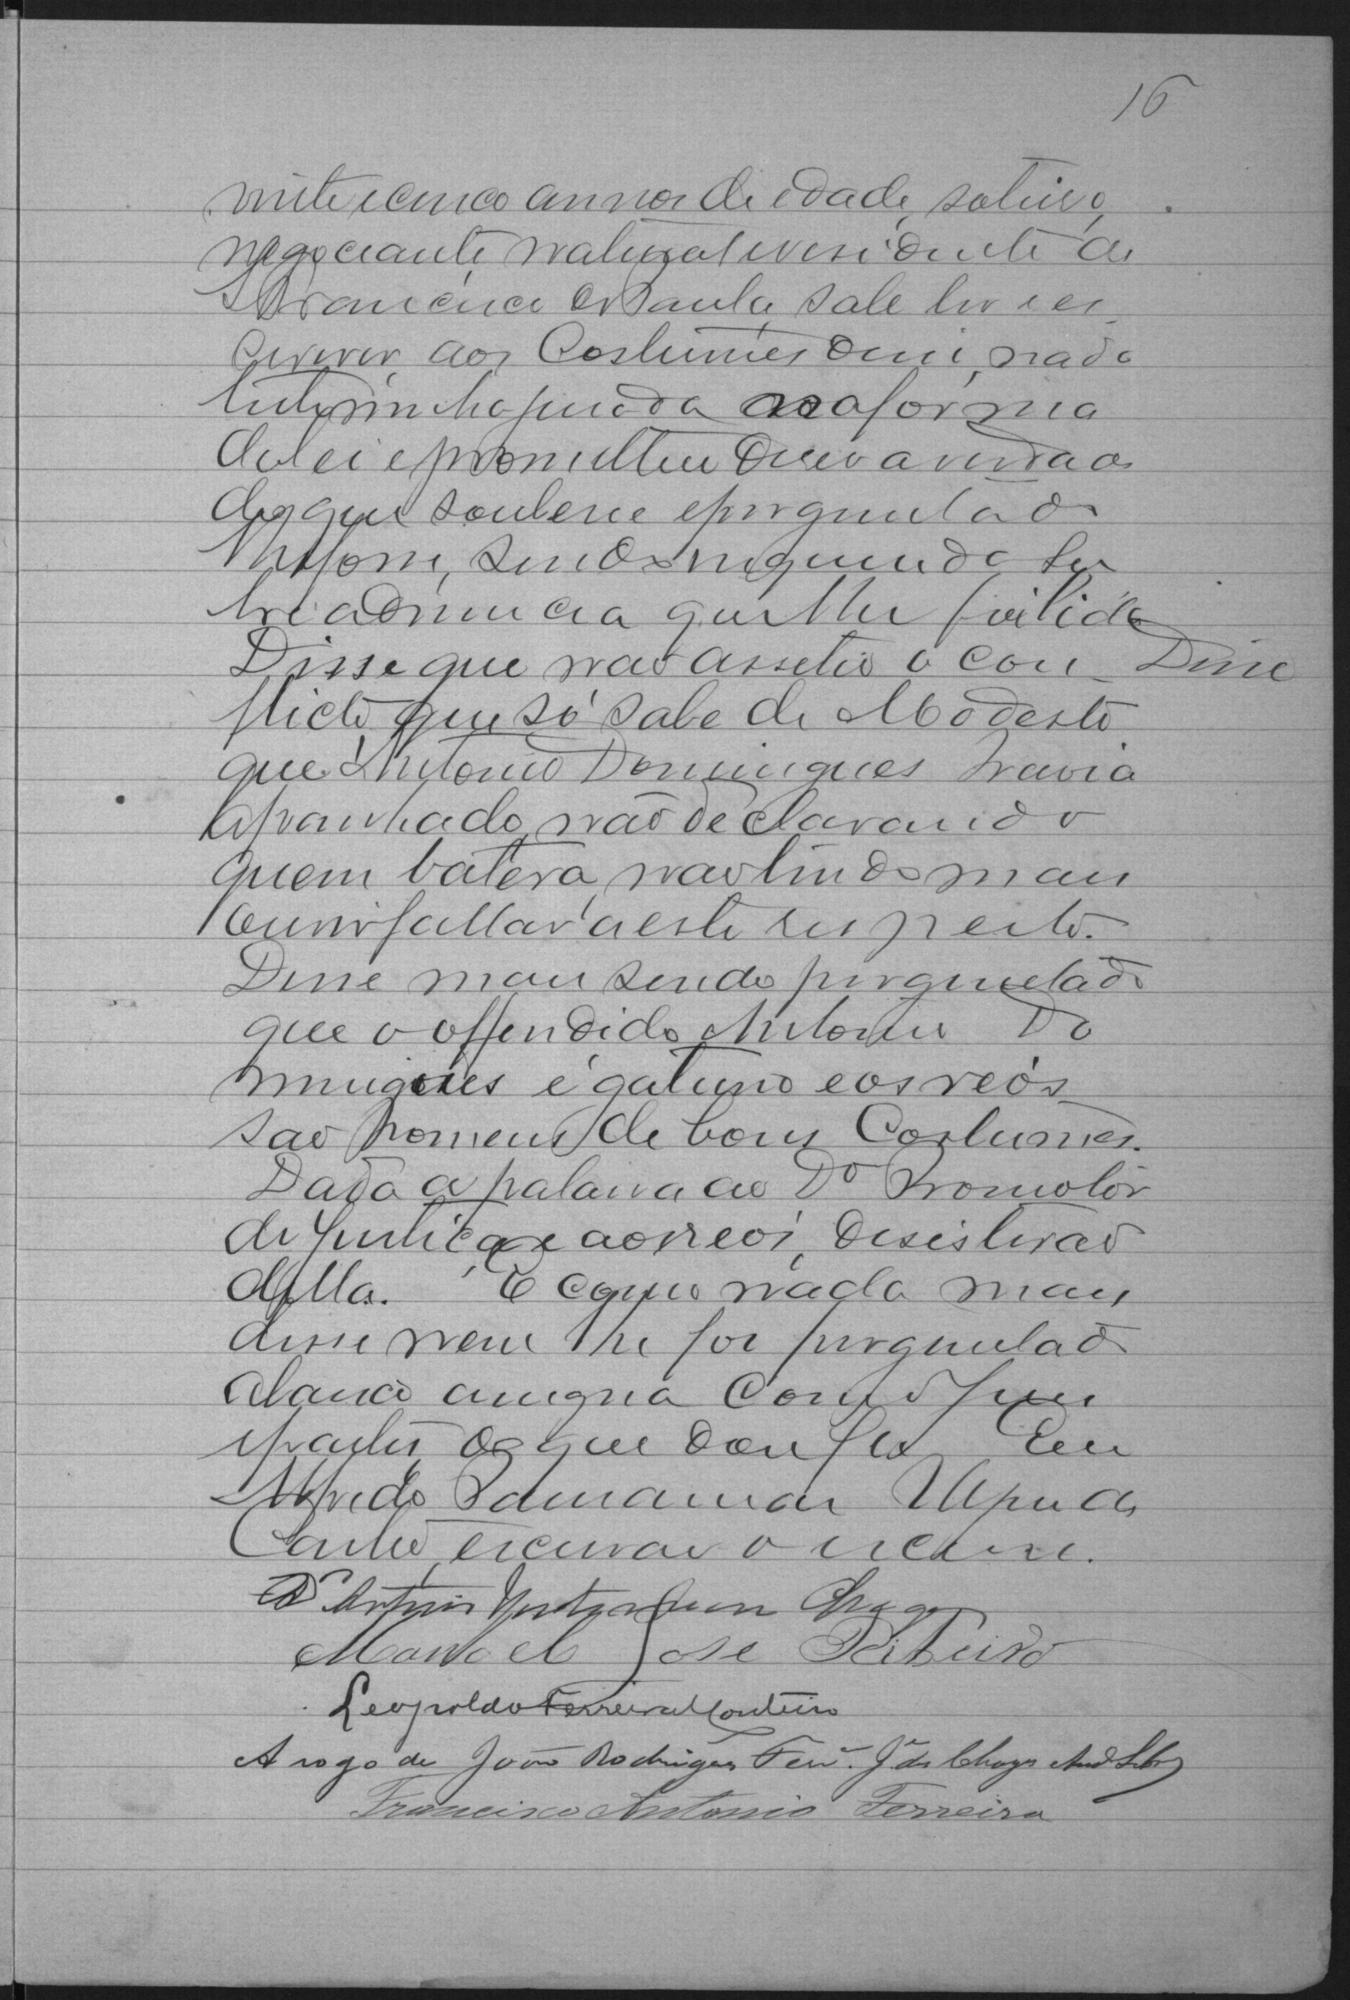 16
vinte e cinco annos de edade, solteiro,
negociante natural e residente de
S. Francisco de Paula, sabe ler e es
crever, aos Costumes disse nada
testeminha jurada na forma
da lei e prometteu dizer a verdade
do que soubesse e perguntado
lhe fosse, sendo inquerida so
bre a denuncia que lhe foi lida
Disse que não assistio o con Disse
flicto, que só sabe de Modesto
que Antonio Domingues havia
apanhado, não declarando
quem batera, não tindo mais
ouvir fallar a este respeito.
Disse mais sendo perguntado
que o offendido Antonio Do
mingues é gatuno e os reós
são homens de bons Costumes.
Dada a palavra ao Dº Promotor
de Justiça e aos reos, desistirão
della. E como nada mais
disse nem lhe foi perguntado
assigna com o Juiz
e partes, do que dou fé. Eu
Alfredo
escrivão o escrevi.
Dr Arthur
Manoel José Ribeiro
Leopoldo Ferreira Monteiro
A rogo de João Rodrigues Ferrª. Jº das Chagas
Francisco Antonio Ferreira